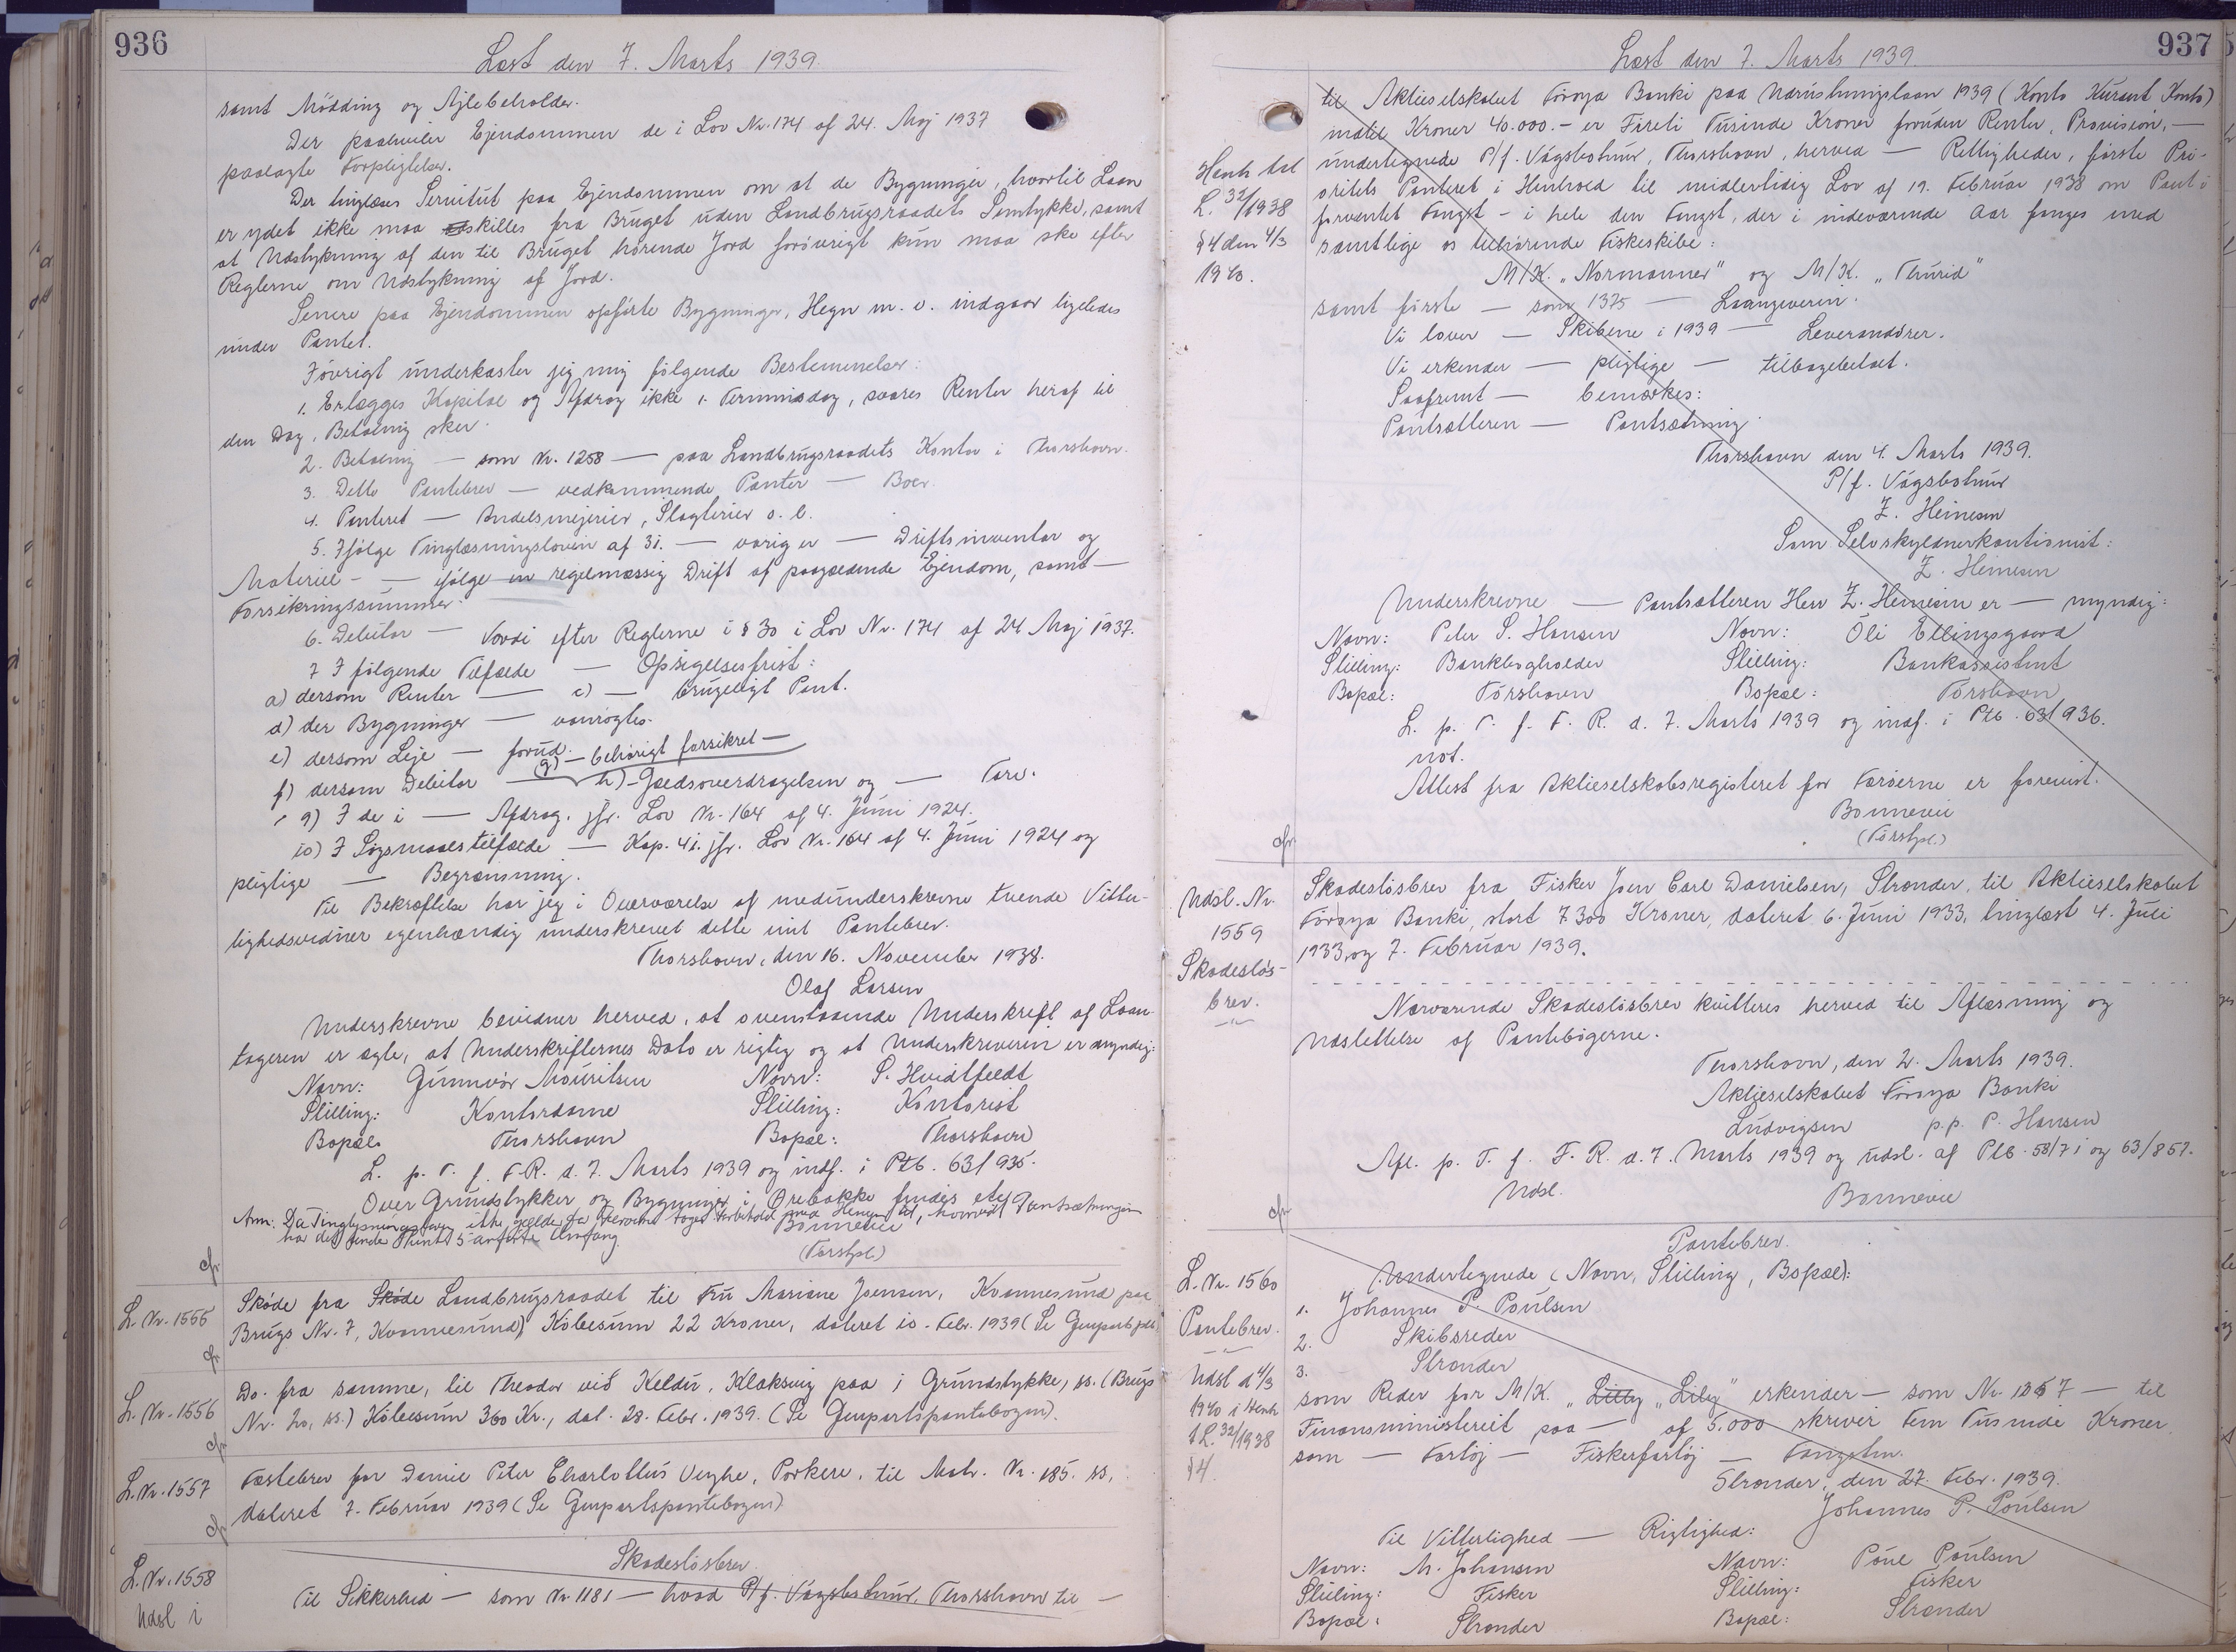 936
Læst den 7. Marts 1939.
samt Mödding og Ajlebeholder.
Der paahviler Ejendommen de i Lov Nr. 174 af 24. Maj 1937
paalagte Forpligtelser.
Der tinglæses Servitut paa Ejendommen om at de Bygninger, hvortil Laan
er ydet ikke maa skilles fra Bruget uden Landbrugsraadets Samtykke, samt
at Udstykning af den til Bruget hörende Jord forövrigt kun maa ske efter
Reglerne om Udstykning af Jord.
Senere paa Ejendommen opförte Bygninger, Hegn m. v. indgaar ligeledes
under Pantet.
Iövrigt underkaster jeg mig fölgende Bestemmelser:
1. Erlægges Kapital og Afdrag ikke 1. Terminsdag, svares Renter heraf til
den Dag, Betaling sker.
2. Betaling — som Nr. 1258 — paa Landbrugsraadets Kontor i Thorshavn.
3. Dette Pantebrev — vedkommende Panter — Boer.
4. Panteret — Andelsmejerier, Slagterier o. l.
5. Ifölge Tinglæsningsloven af 31. — varig er — Driftsinventar og
Materiel - — ifölge en regelmæssig Drift af paagældende Ejendom, samt —
Forsikringssummer.
6. Debitor — Værdi efter Reglerne i § 30 i Lov Nr. 174 af 24 Maj 1937.
7 I fölgende Tilfælde — Opsigelsesfrist:
a) dersom Renter — c) — brugeligt Pant.
d) der Bygninger — vanrögtes.
e) dersom Leje — forud.
g) — behörigt forsikret —
f) dersom Debitor — h) - Gældsoverdragelsen og — Fare.
9) I de i — Afdrag. jfr. Lov Nr. 164 af 4. Juni 1924.
10) I Sögsmaalstilfælde — Kap. 41. jfr. Lov Nr. 164 af 4. Juni 1924 og
pligtige — Begrænsning.
Til Bekræftelse har jeg i Overværelse af medunderskrevne tvende Vitter-
lighedsvidner egenhændig underskrevet dette mit Pantebrev.
Thorshavn, den 16. November 1938.
Olaf Larsen
Underskrevne bevidner herved, at ovenstaaende Underskrift af Laan-
tageren er ægte, at Underskrifternes Dato er rigtig og at Underskriveren er myndig:
Navn: Gunnvör Mouritsen Navn: S. Hvidtfeldt
Stilling: Kontordame Stilling: Kontorist
Bopæl: Thorshavn Bopæl: Thorshavn
L. p. T. f. F. R. d. 7. Marts 1939 og indf. i Ptb. 63/935.
Over Grundstykker og Bygninger i Ørebakke findes
Anm: Da Tinglysningsloven ikke gælder for Færöerne tages Forbehold med Hensyn til, hvorvidt Pantsætningen
har det under Punkt 5 anförte Omfang.
Bonnevie
(Forstpl.)
cfr.
L. Nr. 1555
Sköde fra Sköde Landbrugsraadet til Fru Mariane Joensen, Kvannesund paa
Brugs Nr. 7, Kvannesund, Köbesum 22 Kroner, dateret 10. Febr. 1939 (Se Genpartsptb.)
cfr
L. Nr. 1556
Do. fra samme, til Theodor við Keldu, Klaksvig paa 1 Grundstykke, ss. (Brugs
Nr. 20, ss.) Köbesum 360 Kr., dat. 28. Febr. 1939. (Se Genpartspantebogen).
cfr
L. Nr. 1557
Fæstebrev for Daniel Peter Charlottus Veyhe, Porkere, til Matr. Nr. 185. ss,
dateret 7. Februar 1939 (Se Genpartspantebogen)
cfr
L. Nr. 1558
Udsl i
Skadeslösbrev.
Til Sikkerhed — som Nr. 1181 — hvad P/f. Vágsbotnur, Thorshavn til —
937
Læst den 7. Marts 1939.
til Aktieselskabet Föroya Banki paa Udrustningslaan 1939 (Konto Kurant Konto)
indtil Kroner 40.000.- er Fireti Tusinde Kroner foruden Renter, Provision, —
undertegnede P/f. Vágsbotnur, Thorshavn, herved — Rettigheder, förste Pri-
oritets Panteret i Henhold til midlertidig Lov af 19. Februar 1938 om Pant i
forventet Fangst - i hele den Fangst, der i indeværende Aar fanges med
samtlige os tilhörende Fiskeskibe:
M/K. „Normanner" og M/K. „Thurid"
samt förste — som 1375 — Laangiveren.
Vi lover — Skibene i 1939 — Leverandörer.
Vi erkender — pligtige — tilbagebetalt.
Saafremt — bemærkes:
Pantsætteren — Pantsætning.
Henh til
L. 32/1938
§ 4 den 4/3
1940.
Thorshavn den 4. Marts 1939.
P/f. Vágsbotnur
Z. Heinesen
Som Selvskyldnerkautionist:
Z. Heinesen
Underskrevne — Pantsætteren Herr Z. Heinesen er — myndig:
Navn: Peter S. Hansen Navn: Óli Ellingsgaard
Stilling: Bankbogholder Stilling: Bankassistent
Bopæl: Tórshavn Bopæl: Tórshavn
L. p. T. f. F. R. d. 7. Marts 1939 og indf. i Ptb. 63/936.
not.
Attest fra Aktieselskabsregisteret for Færöerne er forevist.
Bonnevie
(Forstpl.)
cfr.
Udsl. Nr.
1559
Skadeslös-
brev.
Skadeslösbrev fra Fisker Joen Carl Danielsen, Strænder, til Aktieselskabet
Föroya Banki, stort 7300 Kroner, dateret 6. Juni 1933, tinglæst 4. Juli
1933, og 7. Februar 1939.
Nærværende Skadeslösbrev kvitteres herved til Aflæsning og
Udslettelse af Pantebögerne.
Thorshavn, den 2. Marts 1939.
Aktieselskabet Föroya Banki
Ludvigsen p.p. P. Hansen
Afl. p. T. f. F. R. d. 7. Marts 1939 og udsl. af Ptb. 58/71 og 63/857.
Udsl. Bonnevie
cfr.
Pantebrev.
L. Nr. 1560
Pantebrev.
Udsl d 4/3
1940 i Henh
t L. 32/1938
§ 4.
Undertegnede (Navn, Stilling, Bopæl):
1. Johannes P. Poulsen
2. Skibsreder
3. Strænder
som Reder for M/K. „Lilly „Lily" erkender — som Nr. 1257 — til
Finansministeriet paa — af 5.000 skriver Fem Tusinde Kroner
som — Fartöj — Fiskerfartöj — Fangsten.
Strænder, den 27. Febr. 1939.
Johannes P. Poulsen
Til Vitterlighed — Rigtighed:
Navn: M. Johansen Navn: Poul Poulsen
Stilling: Fisker Stilling: Fisker
Bopæl: Strænder Bopæl: Strænder